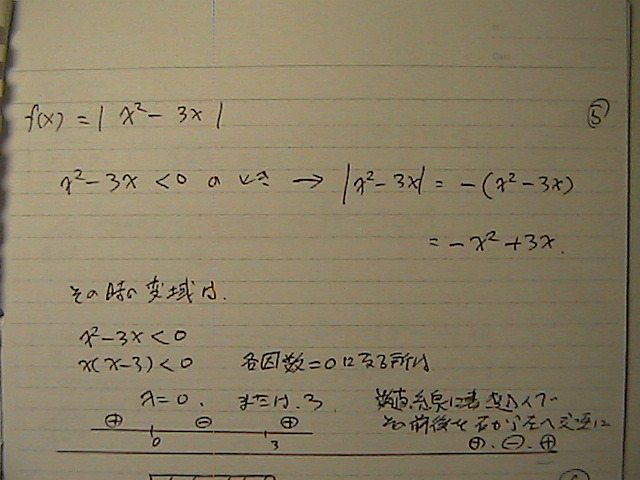 f(x) = | x² - 3x |
⑤
x² - 3x < 0 のとき → |x² - 3x| = -(x² - 3x)
= -x² + 3x.
その時の変域は.
x² - 3x < 0
x(x-3) < 0 各因数=0に至る所は
x = 0. または、3. 数直線に書き込んで
⊕ ⊖ ⊕ その前後を右から左へ交互に
0 3 ⊕.⊖.⊕